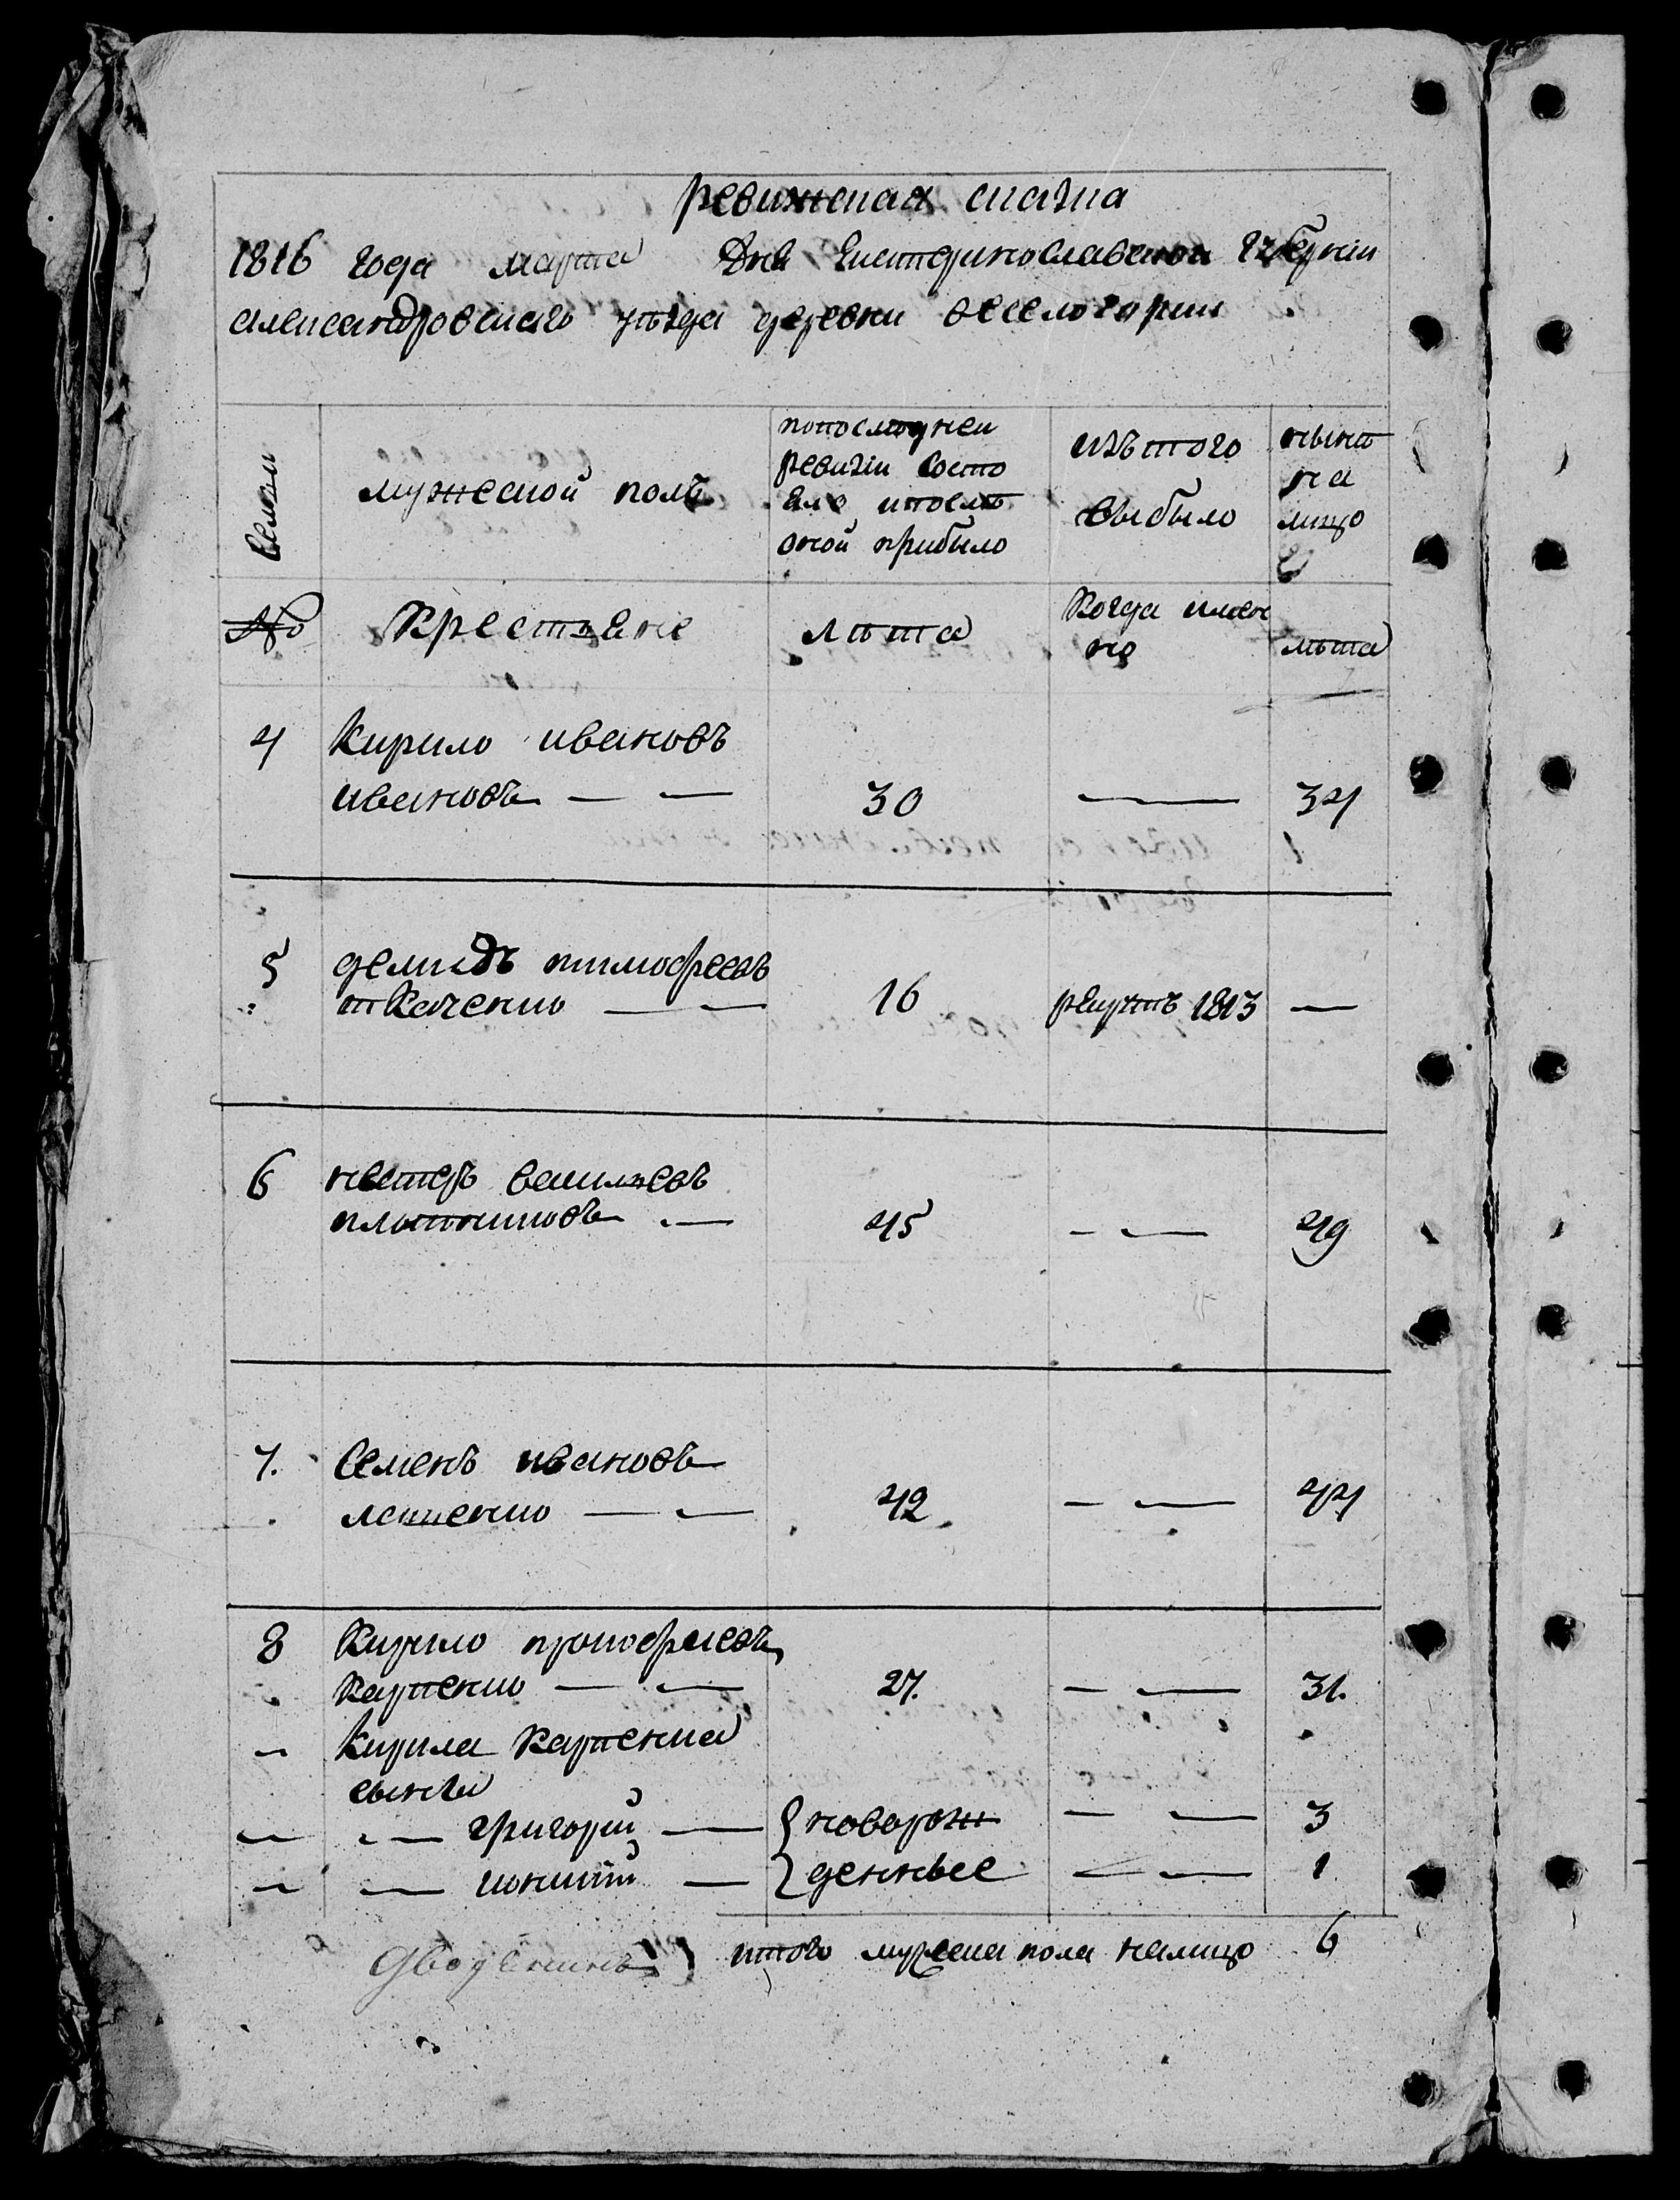 ревижская сказка
1816 года марта Дня Екатеринославской губернїи
александровскаго уѣзда деревни веселогории
Семьи
мужеской полъ
попоследнеи
ревизїи состо
яло ипослѣ
оной прибыло
изътого
выбыло
нынѣ
на
лицо
№
Крестьяне
лѣта
Когда имен
но
лѣта
4 Кирило ивановъ
ивановъ — — 30 — 34
5 демидъ тимофеевъ
ткаченко — — 16 рекрутъ 1813 —
6 нестеръ васильевъ
плотниковъ — 45 — — 49
7. Семенъ ивановъ
лащенко — — 42 — — 44
8 Кирило прокофьевъ
Карпенко — — 27. — — 31.
— Кирила Карпенка
сынки
— — григорий — { новорож — — 3
— — — } денные — — 1
итого мужеска пола налицо 6